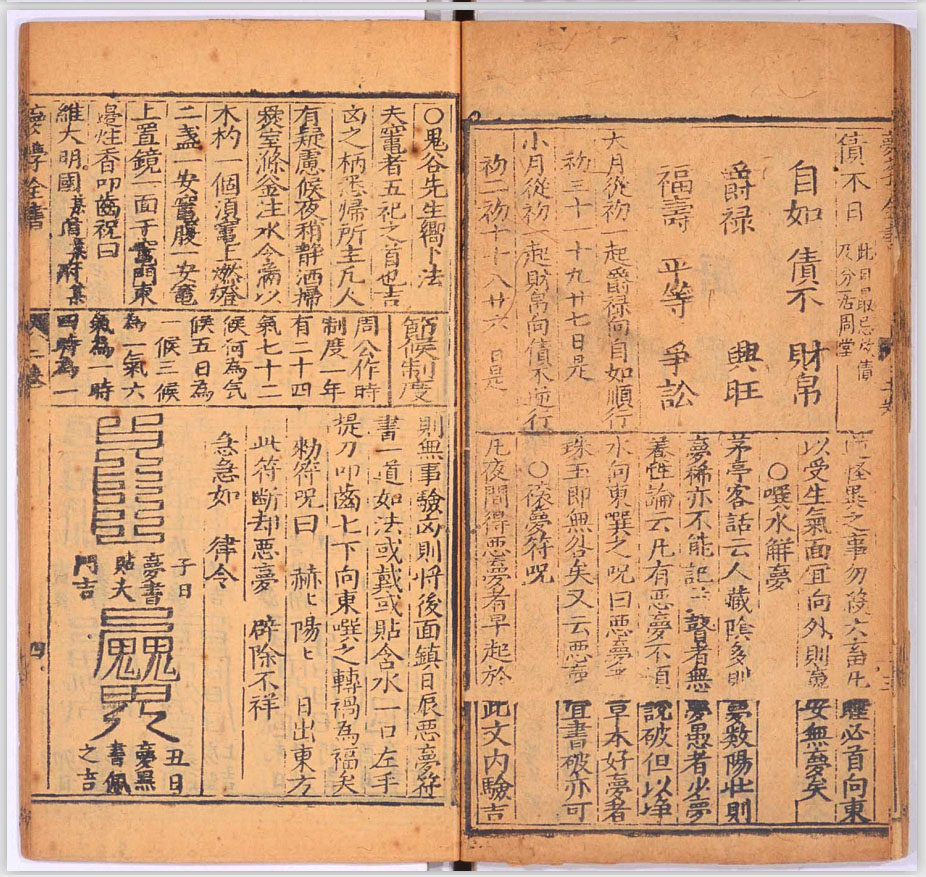 債不日
此日最忌放債
及分居周堂
自如 債不 財帛
爵祿 興旺
福壽 平等 爭訟
大月從初一起爵祿向自如順行
初三十一十九廿七日是
小月從初一起財帛向債不逆行
初二初十十八廿六日是
怪異之事勿 六畜 臥必首向東
以受生氣面宜向外則 安無夢矣
○噀水解夢
茅亭客話云人藏陰多則夢数陽壯則
夢稀亦不能記二瞽者無夢愚者少夢
養性論云凡有惡夢不須說破但以净
水向東噀之呪曰惡夢 草木好夢者
珠玉即無咎矣又云惡夢宜書破亦可
○禳夢符呪
凡夜間得惡夢者早起於此文內驗吉
○鬼谷先生嚮卜法
夫竈者五祀之首也吉
凶之柄悉歸所主凡人
有疑慮候夜稍静洒掃
爨室滌釜注水令滿以
木杓一個湏竈上燃燈
二盞一安竈腹一安竈
上置鏡一面于竈門東
邊炷香叩齒祝曰
維大明國某省某府某
節候制度
周公作時
制度一年
有二十四
氣七十二
候何為気
候五日為
一候三候
為一氣六
氣為一時
四時為一
則無事驗凶則將後面鎮日辰惡夢符
書一道如法或戴或貼含水一口左手
提刀叩齒七下向東噀之轉禍為福矣
勅符呪曰 赫ヒ陽ヒ 日出東方
此符断却惡夢 辟除不祥
急急如 律令
子日
夢書
貼大
門吉
丑日
夢惡
書佩
之吉
四